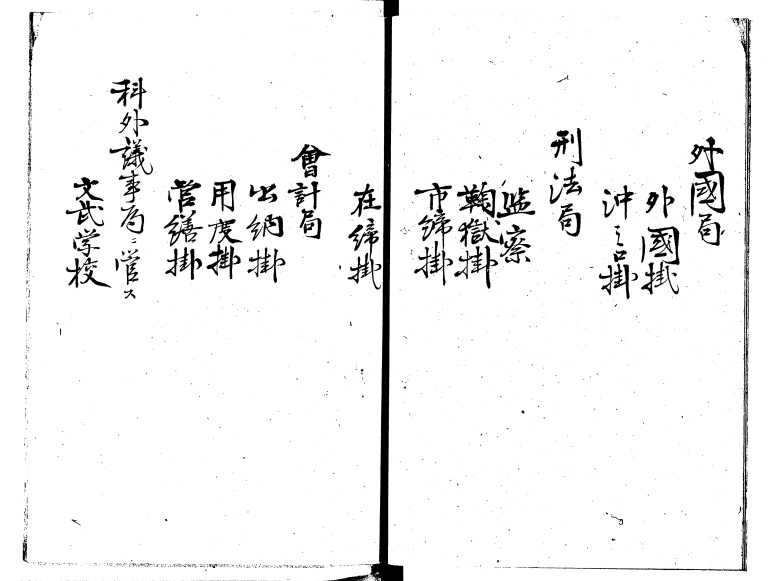 外國局
外國掛
沖之口掛
刑法局
監察
鞠獄掛
市締掛
在締掛
會計局
出納掛
用度掛
営繕掛
科外議事局ニ管ス
文武学校